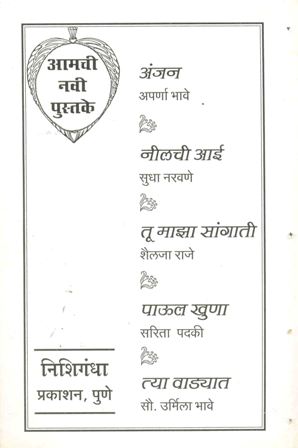 आमची
नवी
पुस्तके
अंजन
अपर्णा भावे
नीलची आई
सुधा नरवणे
तू माझा सांगाती
शैलजा राजे
पाऊल खुणा
सरिता पदकी
त्या वाड्यात
सौ. उर्मिला भावे
निशिगंधा
प्रकाशन, पुणे